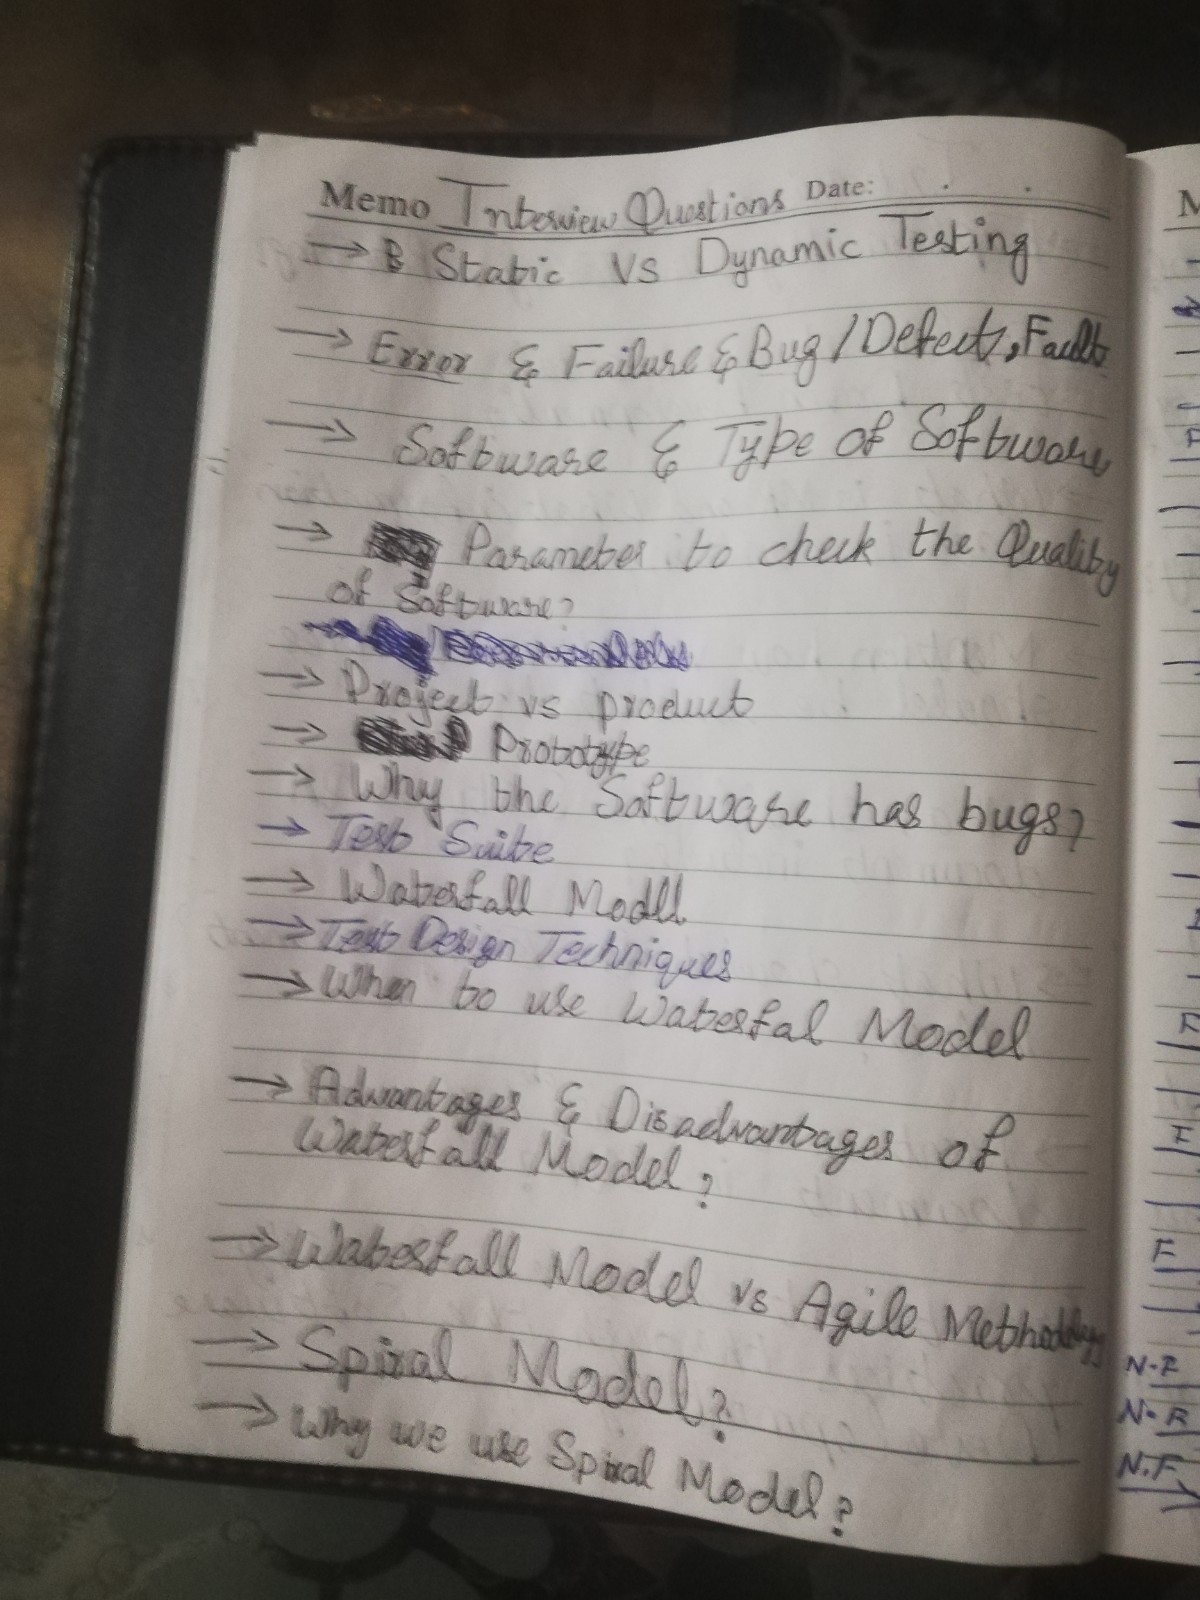 Memo Interview Questions Date:
→ Static VS Dynamic Testing
→ Error & Failure & Bug/Defect, Fault
→ Software & Type of Software
→ Parameter to check the Quality
of Software?
→ Project vs product
→ Prototype
→ Why the Software has bugs?
→ Test Suite
→ Waterfall Modll
→ Test Design Techniques
→ When to use Waterfal Model
→ Advantages & Disadvantages of
Waterfall Model?
→ Waterfall Model vs Agile Methodology
→ Spiral Model?
→ Why we use Spiral Model?
M
F
F
F
N-F
N-F
N.F